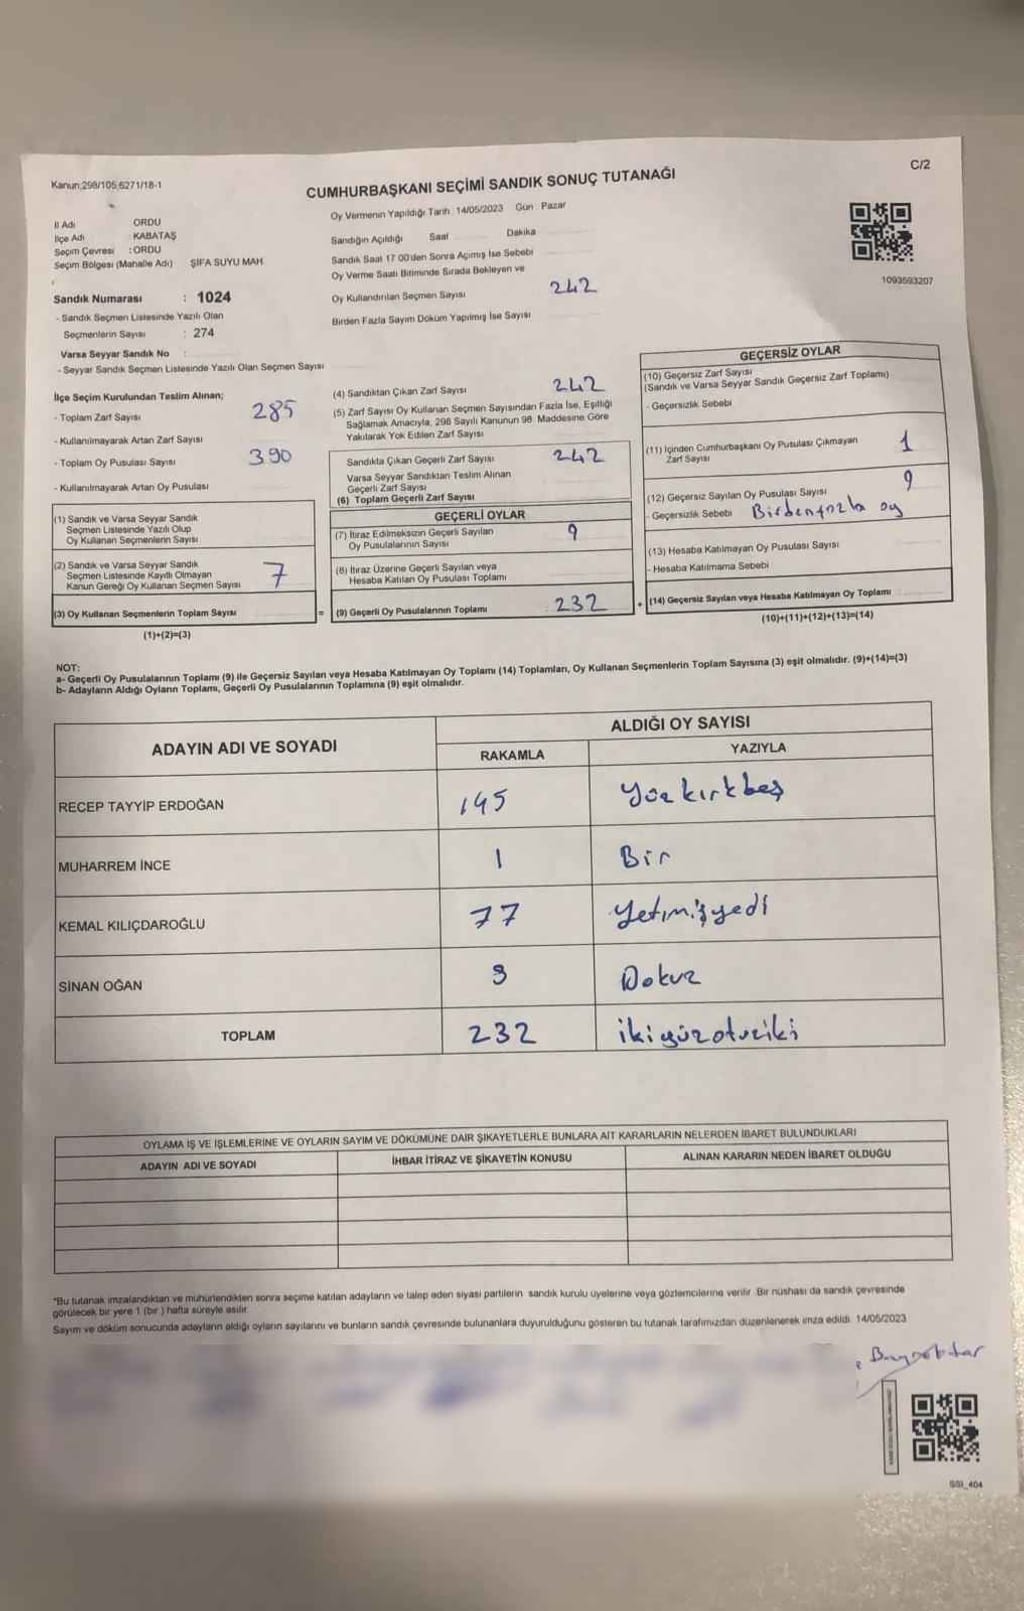 Kanun;298/105,6271/18-1
C/2
CUMHURBAŞKANI SEÇİMİ SANDIK SONUÇ TUTANAĞI
İl Adı ORDU
İlçe Adı : KABATAŞ
Seçim Çevresi : ORDU
Seçim Bölgesi (Mahalle Adı) ŞİFA SUYU MAH.
Sandık Numarası : 1024
- Sandık Seçmen Listesinde Yazılı Olan
Seçmenlerin Sayısı : 274
Varsa Seyyar Sandık No :
- Seyyar Sandık Seçmen Listesinde Yazılı Olan Seçmen Sayısı
İlçe Seçim Kurulundan Teslim Alınan;
- Toplam Zarf Sayısı 285
- Kullanılmayarak Artan Zarf Sayısı
- Toplam Oy Pusulası Sayısı 390
- Kullanılmayarak Artan Oy Pusulası
(1) Sandık ve Varsa Seyyar Sandık
Seçmen Listesinde Yazılı Olup
Oy Kullanan Seçmenlerin Sayısı
(2) Sandık ve Varsa Seyyar Sandık
Seçmen Listesinde Kayıtlı Olmayan
Kanun Gereği Oy Kullanan Seçmen Sayısı 7
(3) Oy Kullanan Seçmenlerin Toplam Sayısı
(1)+(2)=(3)
Oy Vermenin Yapıldığı Tarih : 14/05/2023 Gün : Pazar
Sandığın Açıldığı Saat Dakika
Sandık Saat 17:00'den Sonra Açımış İse Sebebi
Oy Verme Saati Bitiminde Sırada Bekleyen ve
Oy Kullandırılan Seçmen Sayısı 242
Birden Fazla Sayım Döküm Yapılmış İse Sayısı
(4) Sandıktan Çıkan Zarf Sayısı 242
(5) Zarf Sayısı Oy Kullanan Seçmen Sayısından Fazla İse, Eşitliği
Sağlamak Amacıyla, 298 Sayılı Kanunun 98. Maddesine Göre
Yakılarak Yok Edilen Zarf Sayısı
Sandıkta Çıkan Geçerli Zarf Sayısı 242
Varsa Seyyar Sandıktan Teslim Alınan
Geçerli Zarf Sayısı
(6) Toplam Geçerli Zarf Sayısı
GEÇERLİ OYLAR
(7) İtiraz Edilmeksizin Geçerli Sayılan
Oy Pusulalarının Sayısı 9
(8) İtiraz Üzerine Geçerli Sayılan veya
Hesaba Katılan Oy Pusulası Toplamı
= (9) Geçerli Oy Pusulalarının Toplamı 232 +
1093593207
GEÇERSİZ OYLAR
(10) Geçersiz Zarf Sayısı
(Sandık ve Varsa Seyyar Sandık Geçersiz Zarf Toplamı)
- Geçersizlik Sebebi
(11) İçinden Cumhurbaşkanı Oy Pusulası Çıkmayan
Zarf Sayısı 1
(12) Geçersiz Sayılan Oy Pusulası Sayısı 9
- Geçersizlik Sebebi Birden fazla oy
(13) Hesaba Katılmayan Oy Pusulası Sayısı
- Hesaba Katılmama Sebebi
(14) Geçersiz Sayılan veya Hesaba Katılmayan Oy Toplamı
(10)+(11)+(12)+(13)=(14)
NOT:
a- Geçerli Oy Pusulalarının Toplamı (9) ile Geçersiz Sayılan veya Hesaba Katılmayan Oy Toplamı (14) Toplamları, Oy Kullanan Seçmenlerin Toplam Sayısına (3) eşit olmalıdır. (9)+(14)=(3)
b- Adayların Aldığı Oyların Toplamı, Geçerli Oy Pusulalarının Toplamına (9) eşit olmalıdır.
ADAYIN ADI VE SOYADI
ALDIĞI OY SAYISI
RAKAMLA YAZIYLA
RECEP TAYYİP ERDOĞAN 145 Yüzkırkbeş
MUHARREM İNCE 1 Bir
KEMAL KILIÇDAROĞLU 77 Yetmişyedi
SİNAN OĞAN 9 Dokuz
TOPLAM 232 ikiyüzotuziki
OYLAMA İŞ VE İŞLEMLERİNE VE OYLARIN SAYIM VE DÖKÜMÜNE DAİR ŞİKAYETLERLE BUNLARA AİT KARARLARIN NELERDEN İBARET BULUNDUKLARI
ADAYIN ADI VE SOYADI İHBAR İTİRAZ VE ŞİKAYETİN KONUSU ALINAN KARARIN NEDEN İBARET OLDUĞU
"Bu tutanak imzalandıktan ve mühürlendikten sonra seçime katılan adayların ve talep eden siyasi partilerin sandık kurulu üyelerine veya gözlemcilerine verilir. Bir nüshası da sandık çevresinde
görülecek bir yere 1 (bir ) hafta süreyle asılır.
Sayım ve döküm sonucunda adayların aldığı oyların sayılarını ve bunların sandık çevresinde bulunanlara duyurulduğunu gösteren bu tutanak tarafımızdan düzenlenerek imza edildi. 14/05/2023
GSI_404